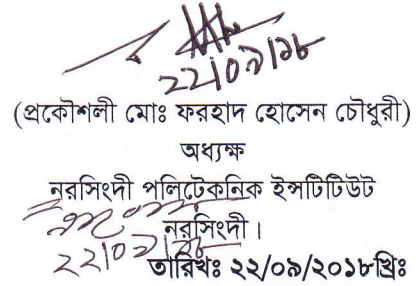 ২২/০৯/১৮
(প্রকৌশলী মোঃ ফরহাদ হোসেন চৌধুরী)
অধ্যক্ষ
নরসিংদী পলিটেকনিক ইন্সটিটিউট
নরসিংদী।
২২/০৯/১৮
তারিখঃ ২২/০৯/২০১৮খ্রিঃ